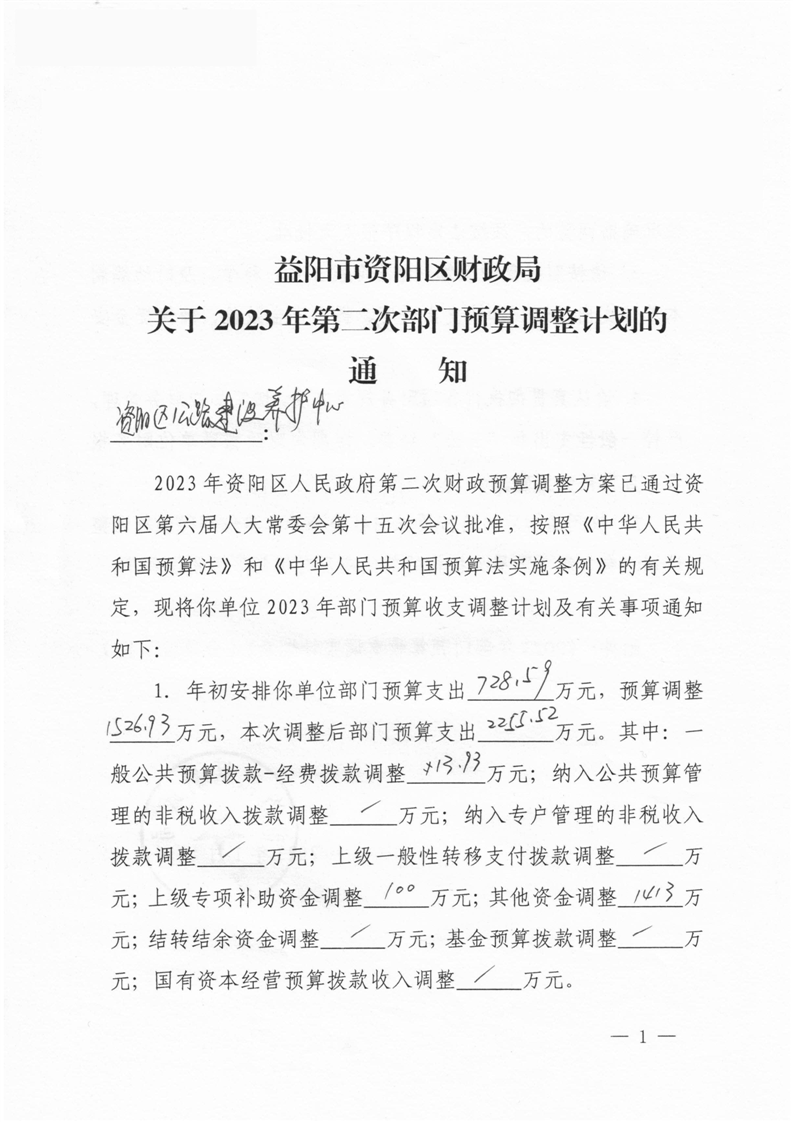 益阳市资阳区财政局
关于 2023 年第二次部门预算调整计划的
通 知
资阳区公路建设养护中心:
2023 年资阳区人民政府第二次财政预算调整方案已通过资
阳区第六届人大常委会第十五次会议批准，按照《中华人民共
和国预算法》和《中华人民共和国预算法实施条例》的有关规
定，现将你单位 2023 年部门预算收支调整计划及有关事项通知
如下:
1. 年初安排你单位部门预算支出 728.59 万元，预算调整
1526.93 万元，本次调整后部门预算支出 2255.52 万元。其中: 一
般公共预算拨款-经费拨款调整 13.93 万元；纳入公共预算管
理的非税收入拨款调整 / 万元；纳入专户管理的非税收入
拨款调整 / 万元；上级一般性转移支付拨款调整 / 万
元；上级专项补助资金调整 100 万元；其他资金调整 1413 万
元；结转结余资金调整 / 万元；基金预算拨款调整 / 万
元；国有资本经营预算拨款收入调整 / 万元。
— 1 —